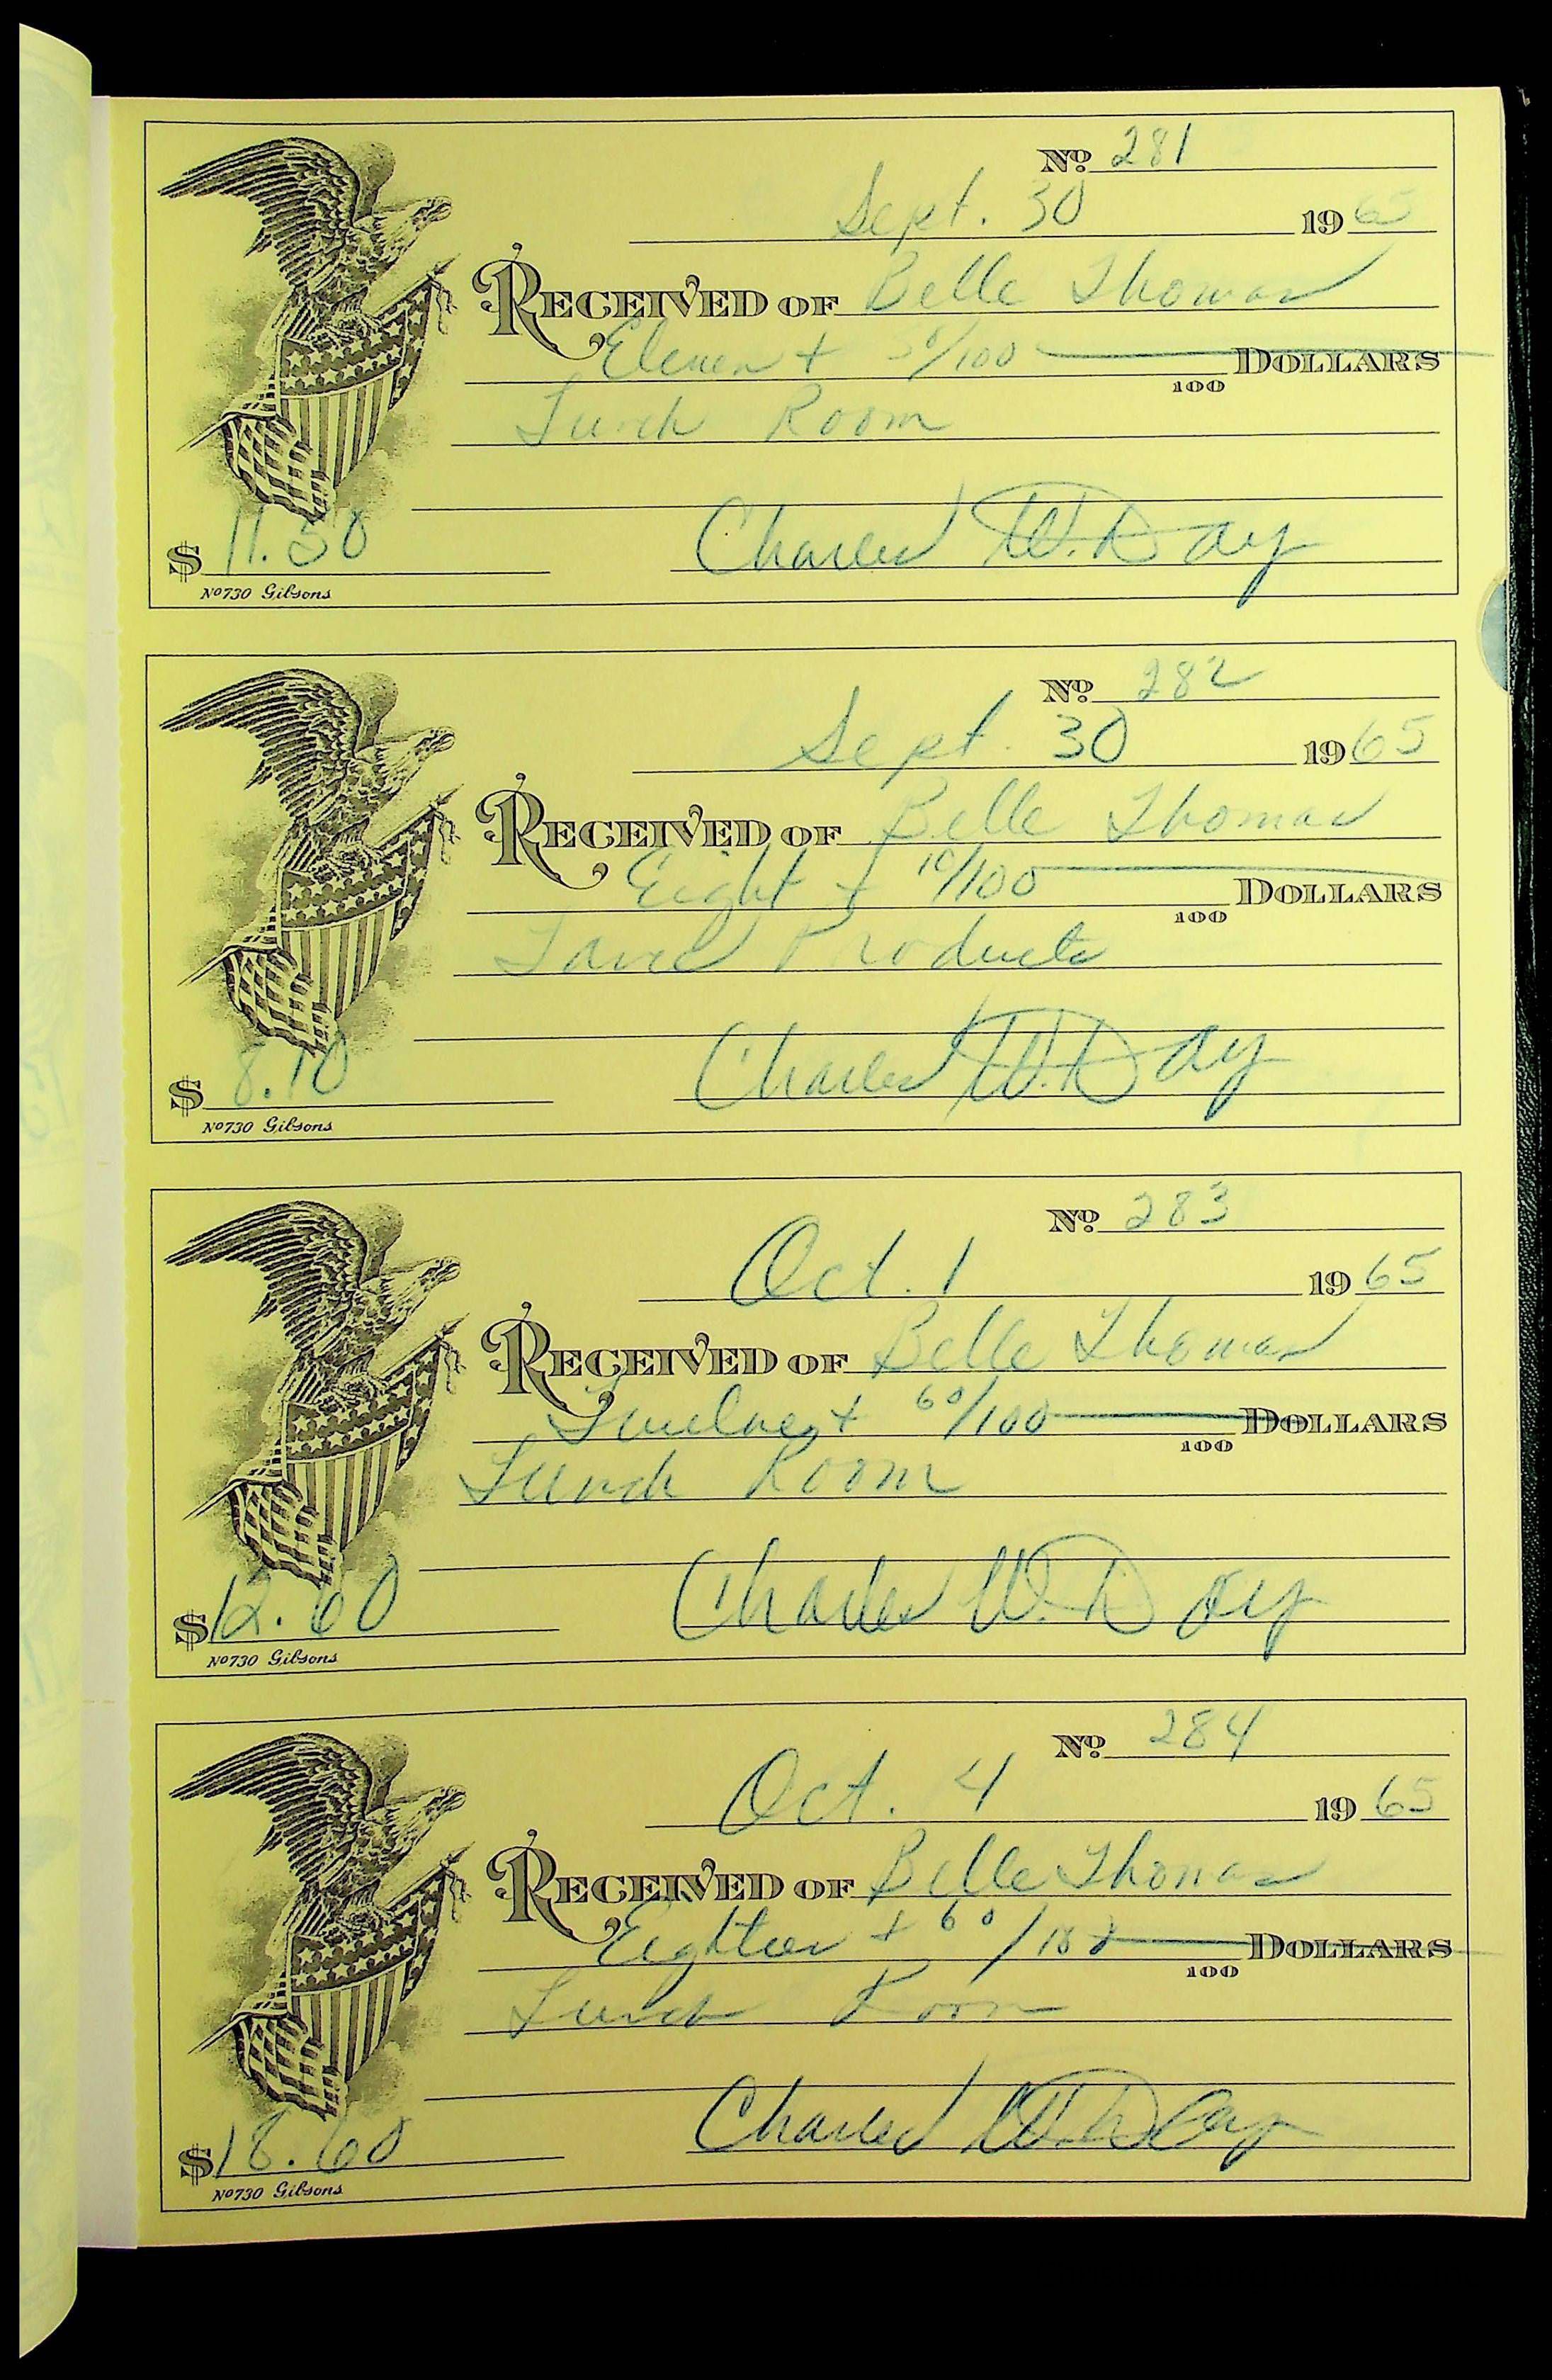 No. 281
Sept. 30 1965
RECEIVED OF Belle Thomas
Eleven + 50/100 DOLLARS
100
Lunch Room
$ 11.50 Charles W. Day
No 730 Gibsons
No. 282
Sept. 30 1965
RECEIVED OF Belle Thomas
Eight + 10/100 DOLLARS
100
Products
$ 8.10 Charles W. Day
No 730 Gibsons
No. 283
Oct. 1 1965
RECEIVED OF Belle Thomas
Twelve + 60/100 DOLLARS
100
Lunch Room
$ 12.60 Charles W. Day
No 730 Gibsons
No. 284
Oct. 4 1965
RECEIVED OF Belle Thomas
Eighteen + 60/100 DOLLARS
100
Lunch Room
$ 18.60 Charles W. Day
No 730 Gibsons